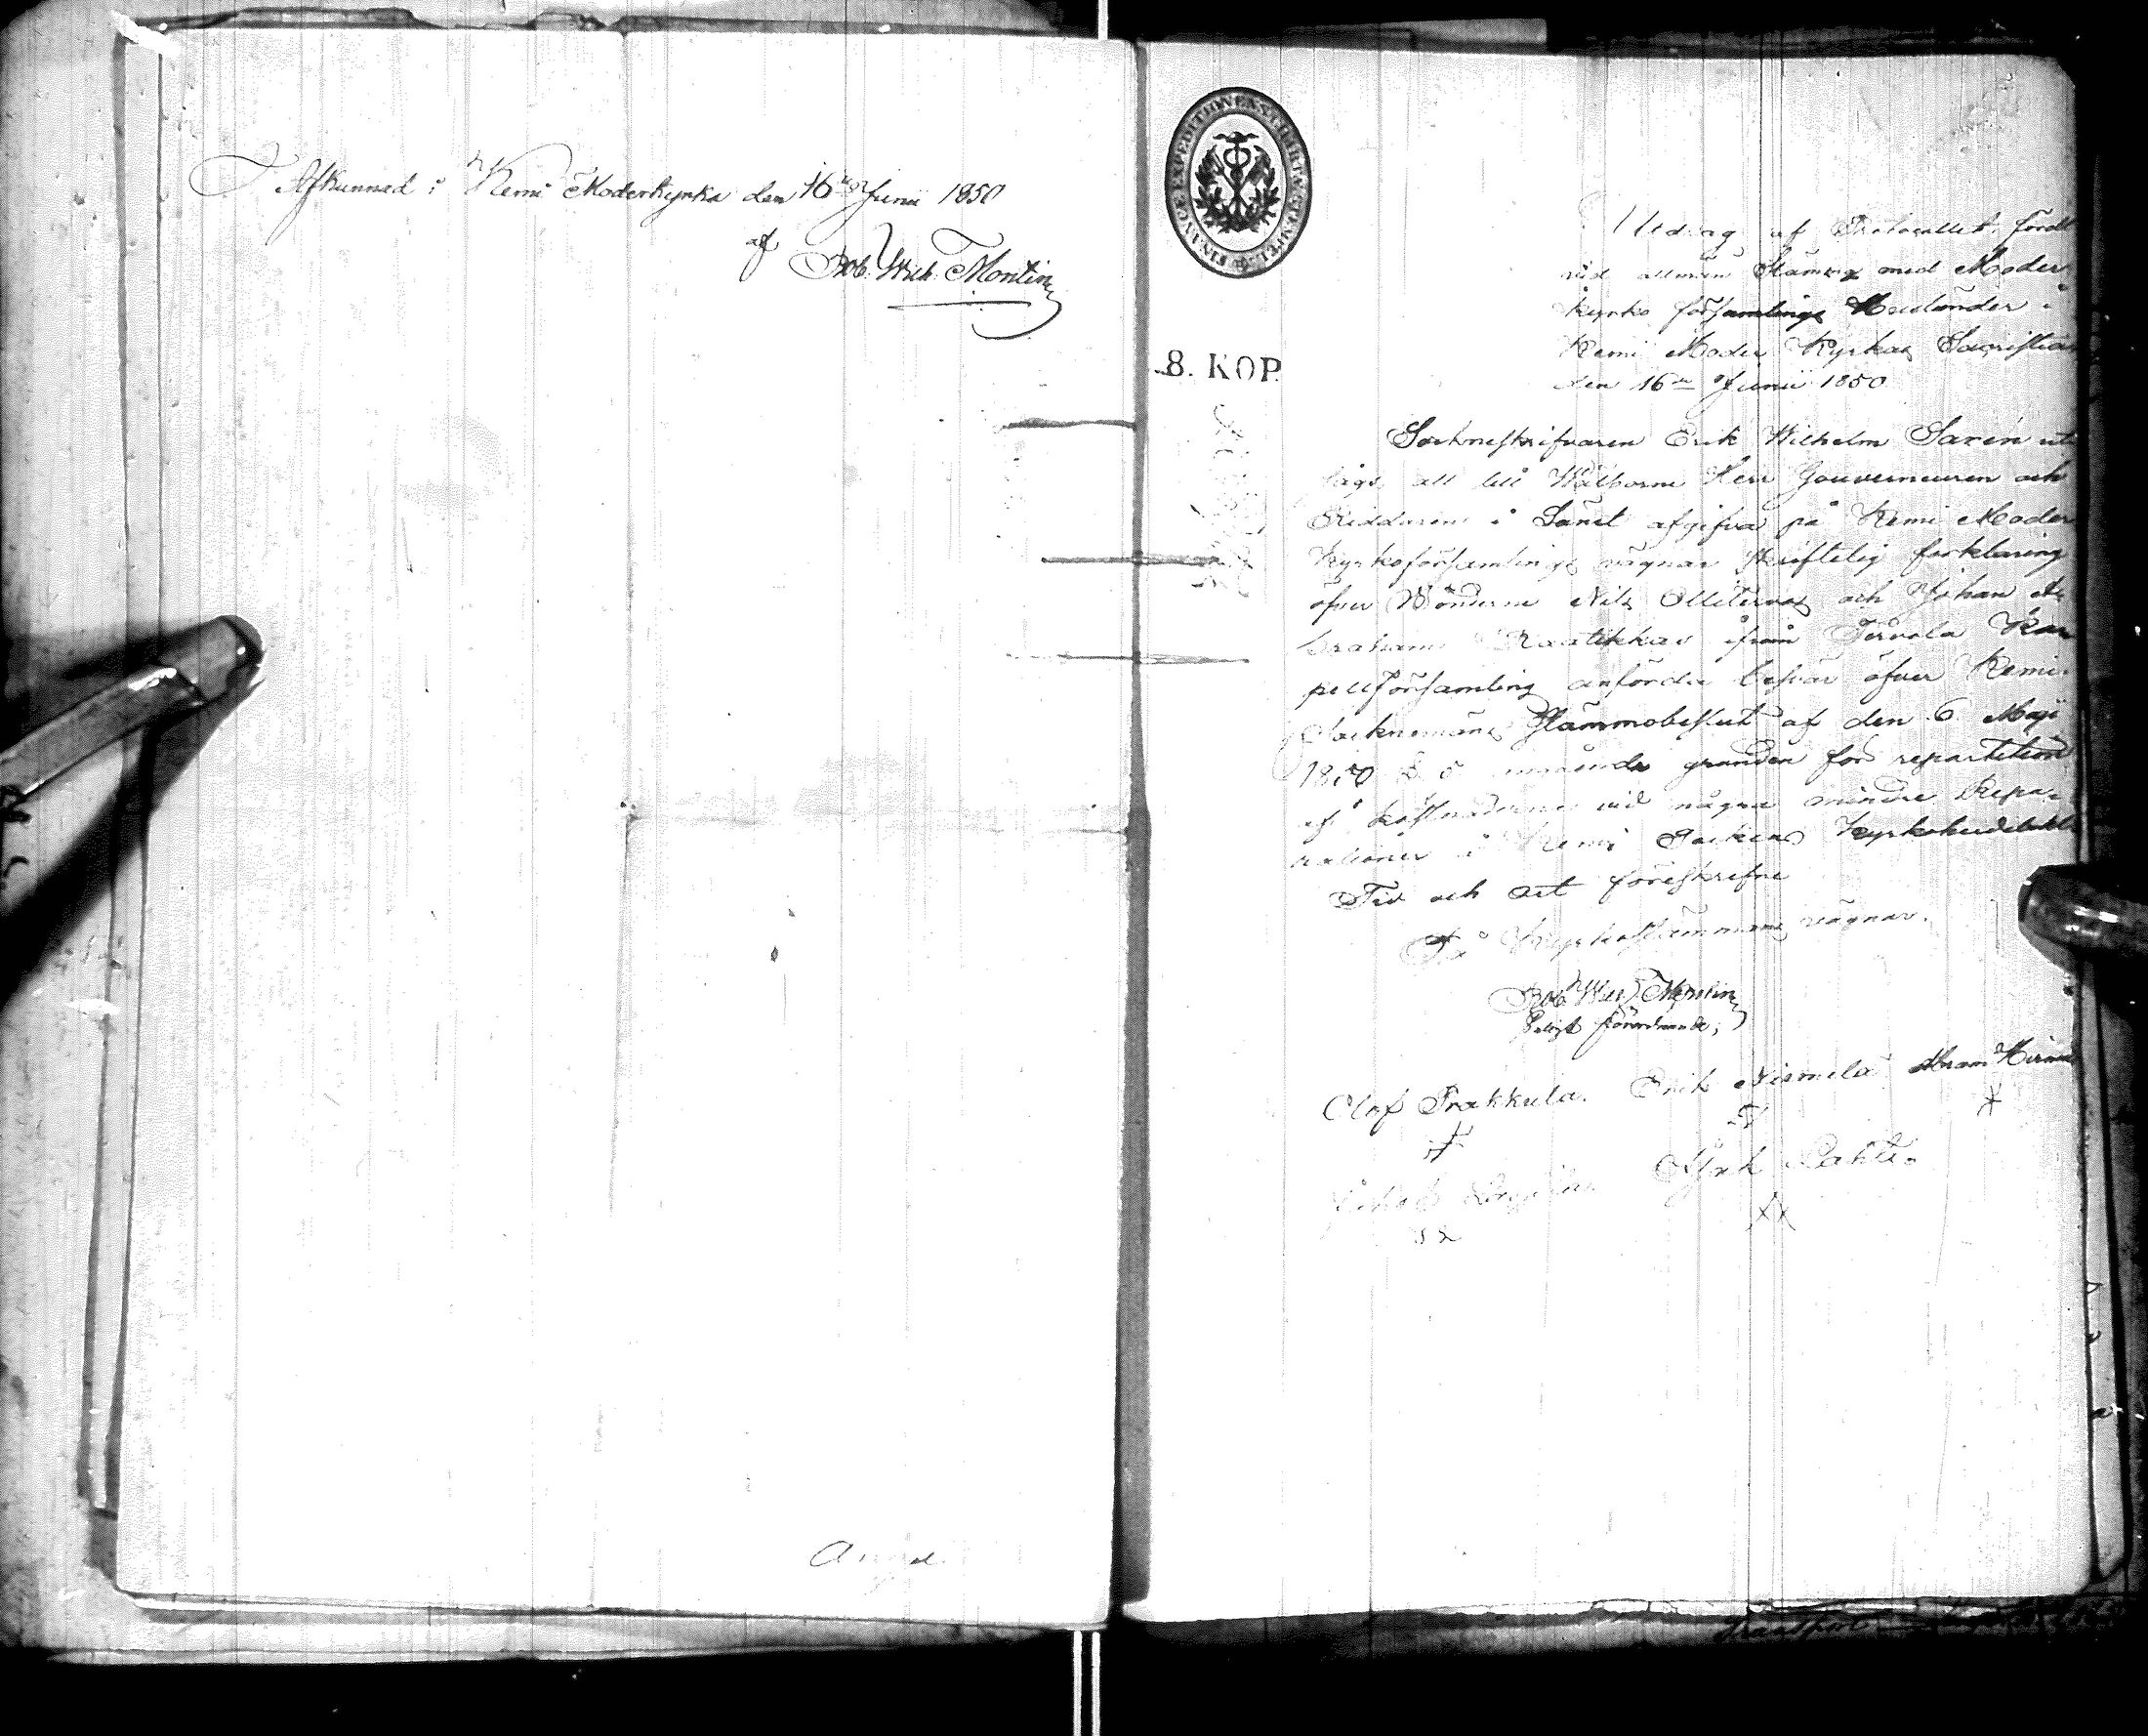 Afkunnad i Kemi Moderkyrka den 16de Junii 1850
af Rob. Wilh. Montin
FINANCE EXPEDITIONENS CHARTÆ STEMPEL
8. KOP.
Utdrag af Protocollet, fördt
vid allmän Stämma med Moder
kyrko församlings Ledamöter i
Kemi Moder Kyrkas Sacristia
den 16de Junii 1850
Sockneskrifvaren Erik Wilhelm Saxén ut
sågs att till Wälborne Herr Gouverneuren och
Riddaren i Länet afgifva på Kemi Moder
Kyrkoförsamlings vägnar skriftelig förklaring
öfver Bönderne Nils Ollitervas och Johan A
braham Raatikkas ifrån Tervola Kap
pellförsamling anförda besvär öfver Kemi
Socknemäns Stämmobeslut af den 6 Maji
1850 grunden för repartition
af kostnaderne vid några mindre Repa-
rationer i Kemi Sockens
Tid och Ort föreskrifne
På Kyrkostämmans vägnar.
Rob. Wilh. Montin
Olof Prakkula. Erik Niemelä Abram
Lahti.